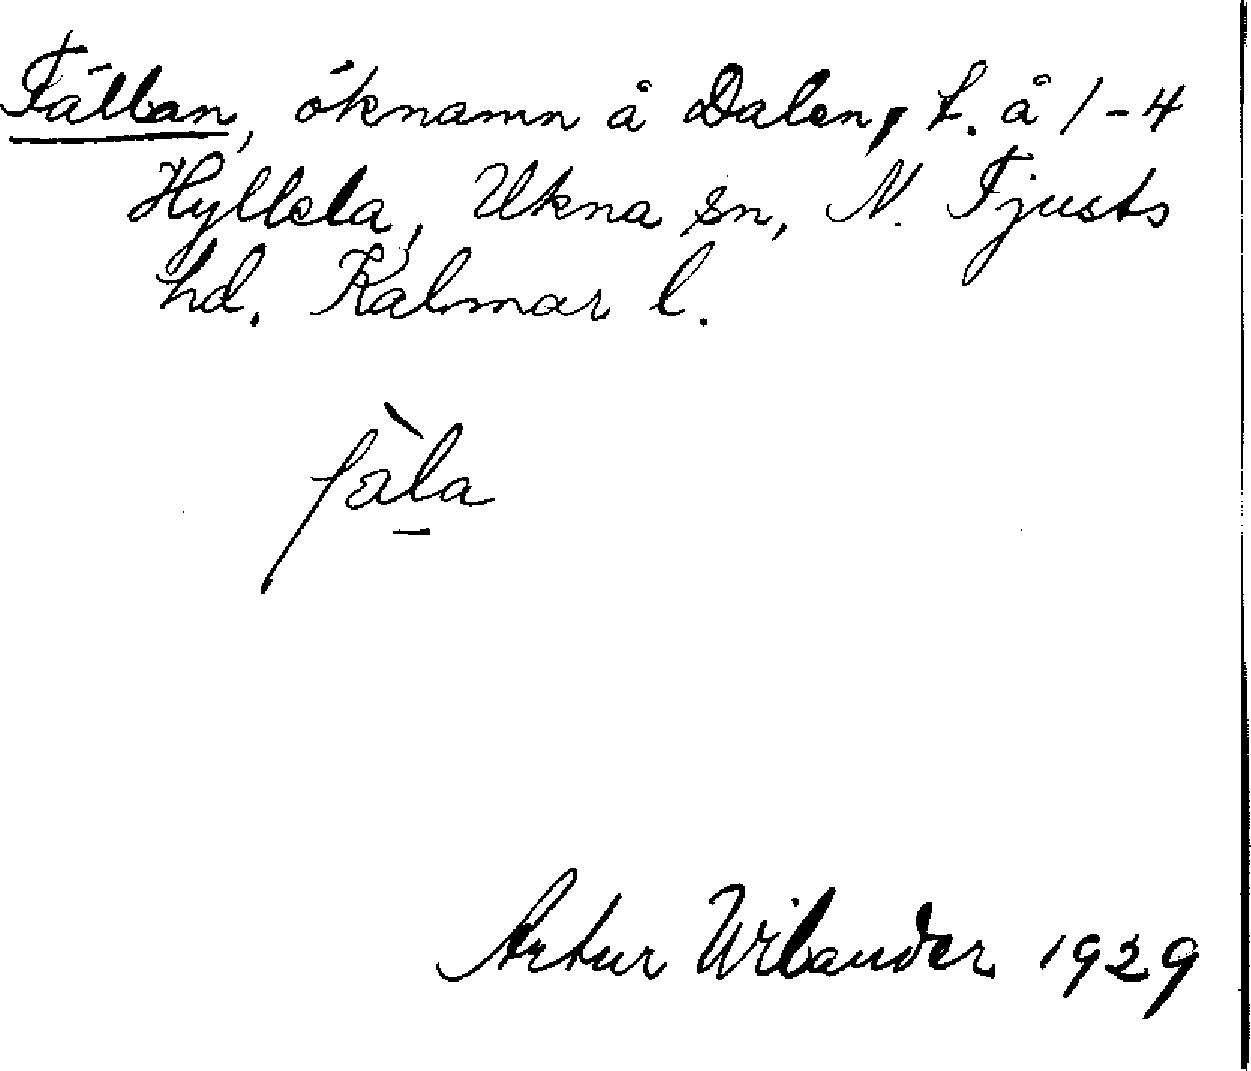 Fällan, öknamn å Dalen, t. å 1-4
Hyllela, Ukna sn, N. Tjusts
hd. Kalmar l.
fàla
Artur Wilander 1929